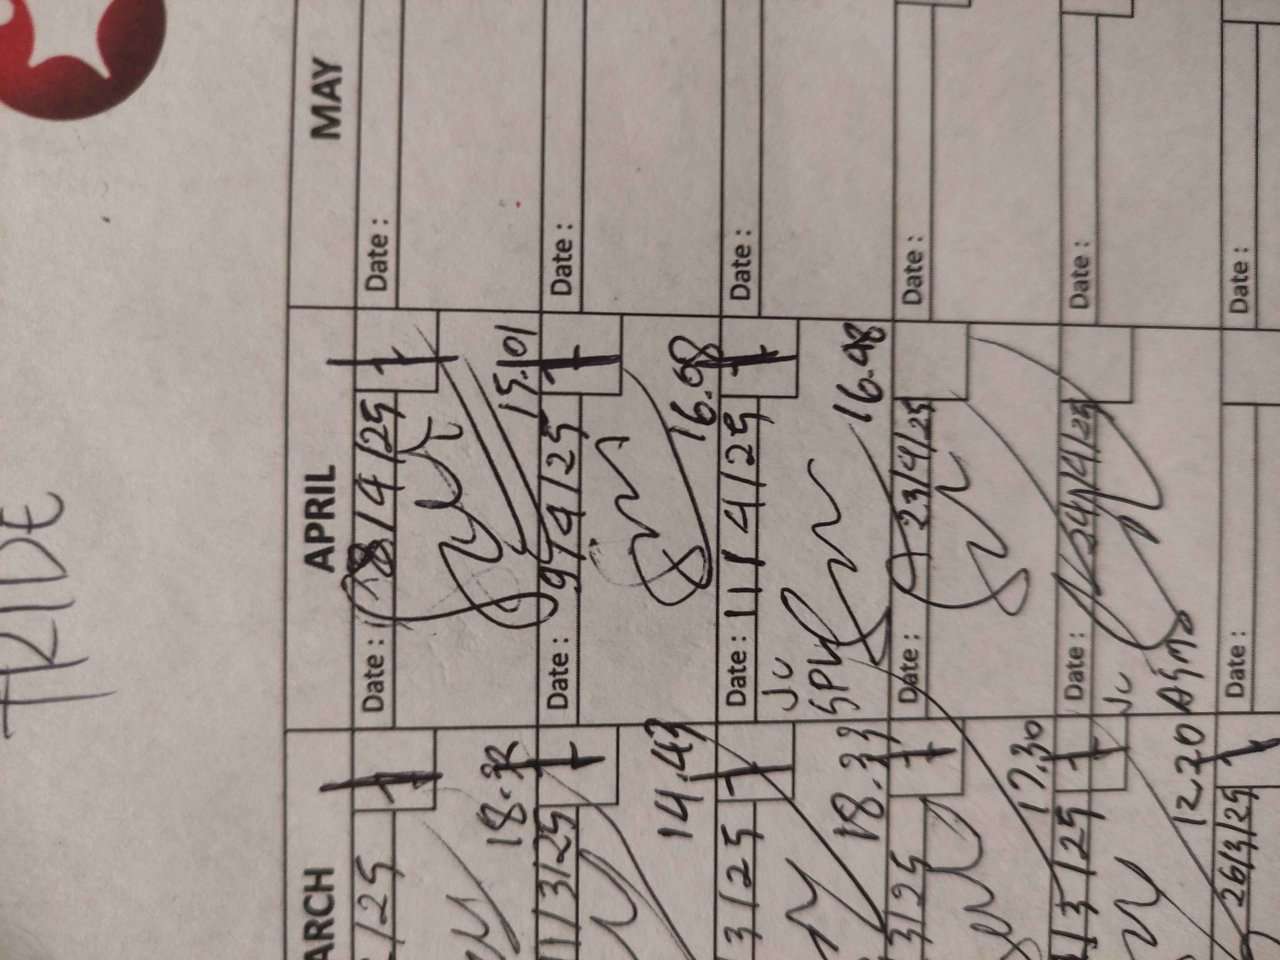 TRIDE
MARCH
APRIL
MAY
/25
18.32
Date : 8/4/25
1
15.101
Date :
11/3/25
1
14.49
Date : 9/4/25
1
16.08
Date :
3/25
1
18.33
Date : 11/4/25
1
JC
SPV
16.48
Date :
3/25
1
17.30
Date : 23/4/25
Date :
13/25
1
12.20
Date : 24/4/25
JC
Date :
26/3/25
Date :
Date :